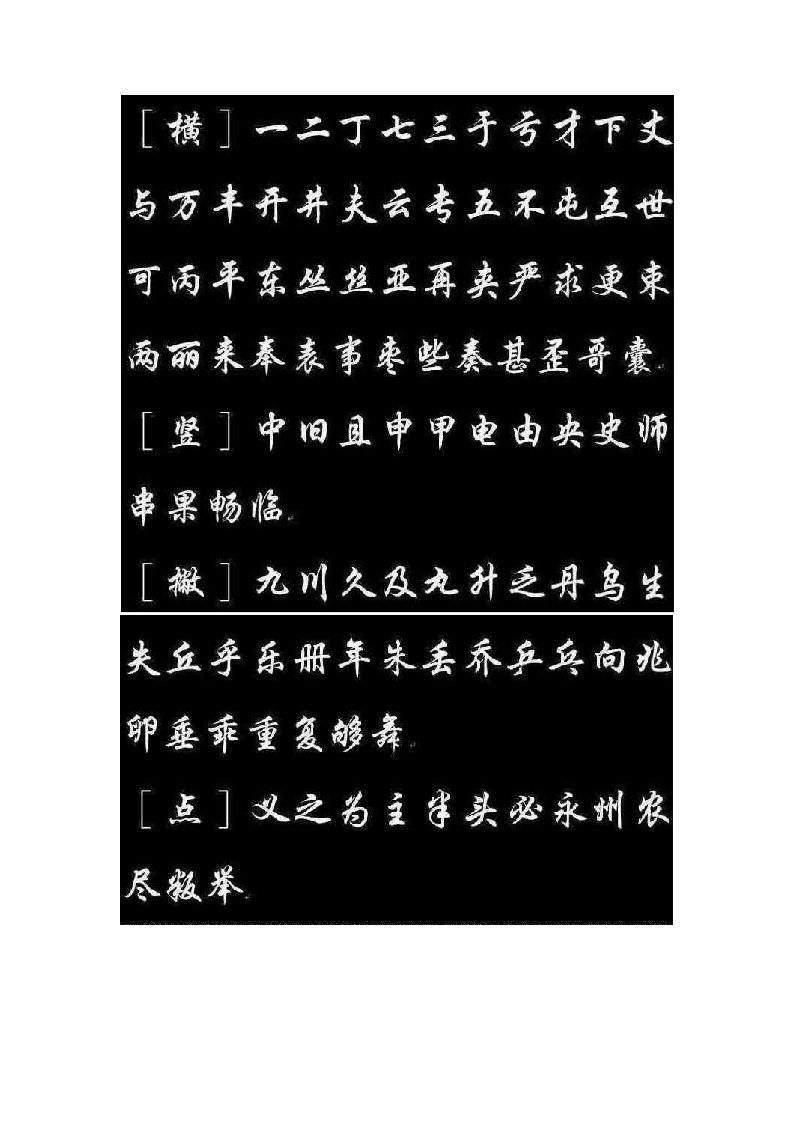 [横]一二丁七三于亏才下丈
与万丰开井夫云专五不屯互世
可丙平东丛丝亚再夹严求更束
两丽来奉表事枣些奏甚歪哥囊
[竖]中旧且申甲电由央史师
串果畅临
[撇]九川久及九升乏丹乌生
失丘乎乐册年朱丢乔乒乓向兆
卵垂乖重复够舞
[点]义之为主半头必永州农
尽叛举